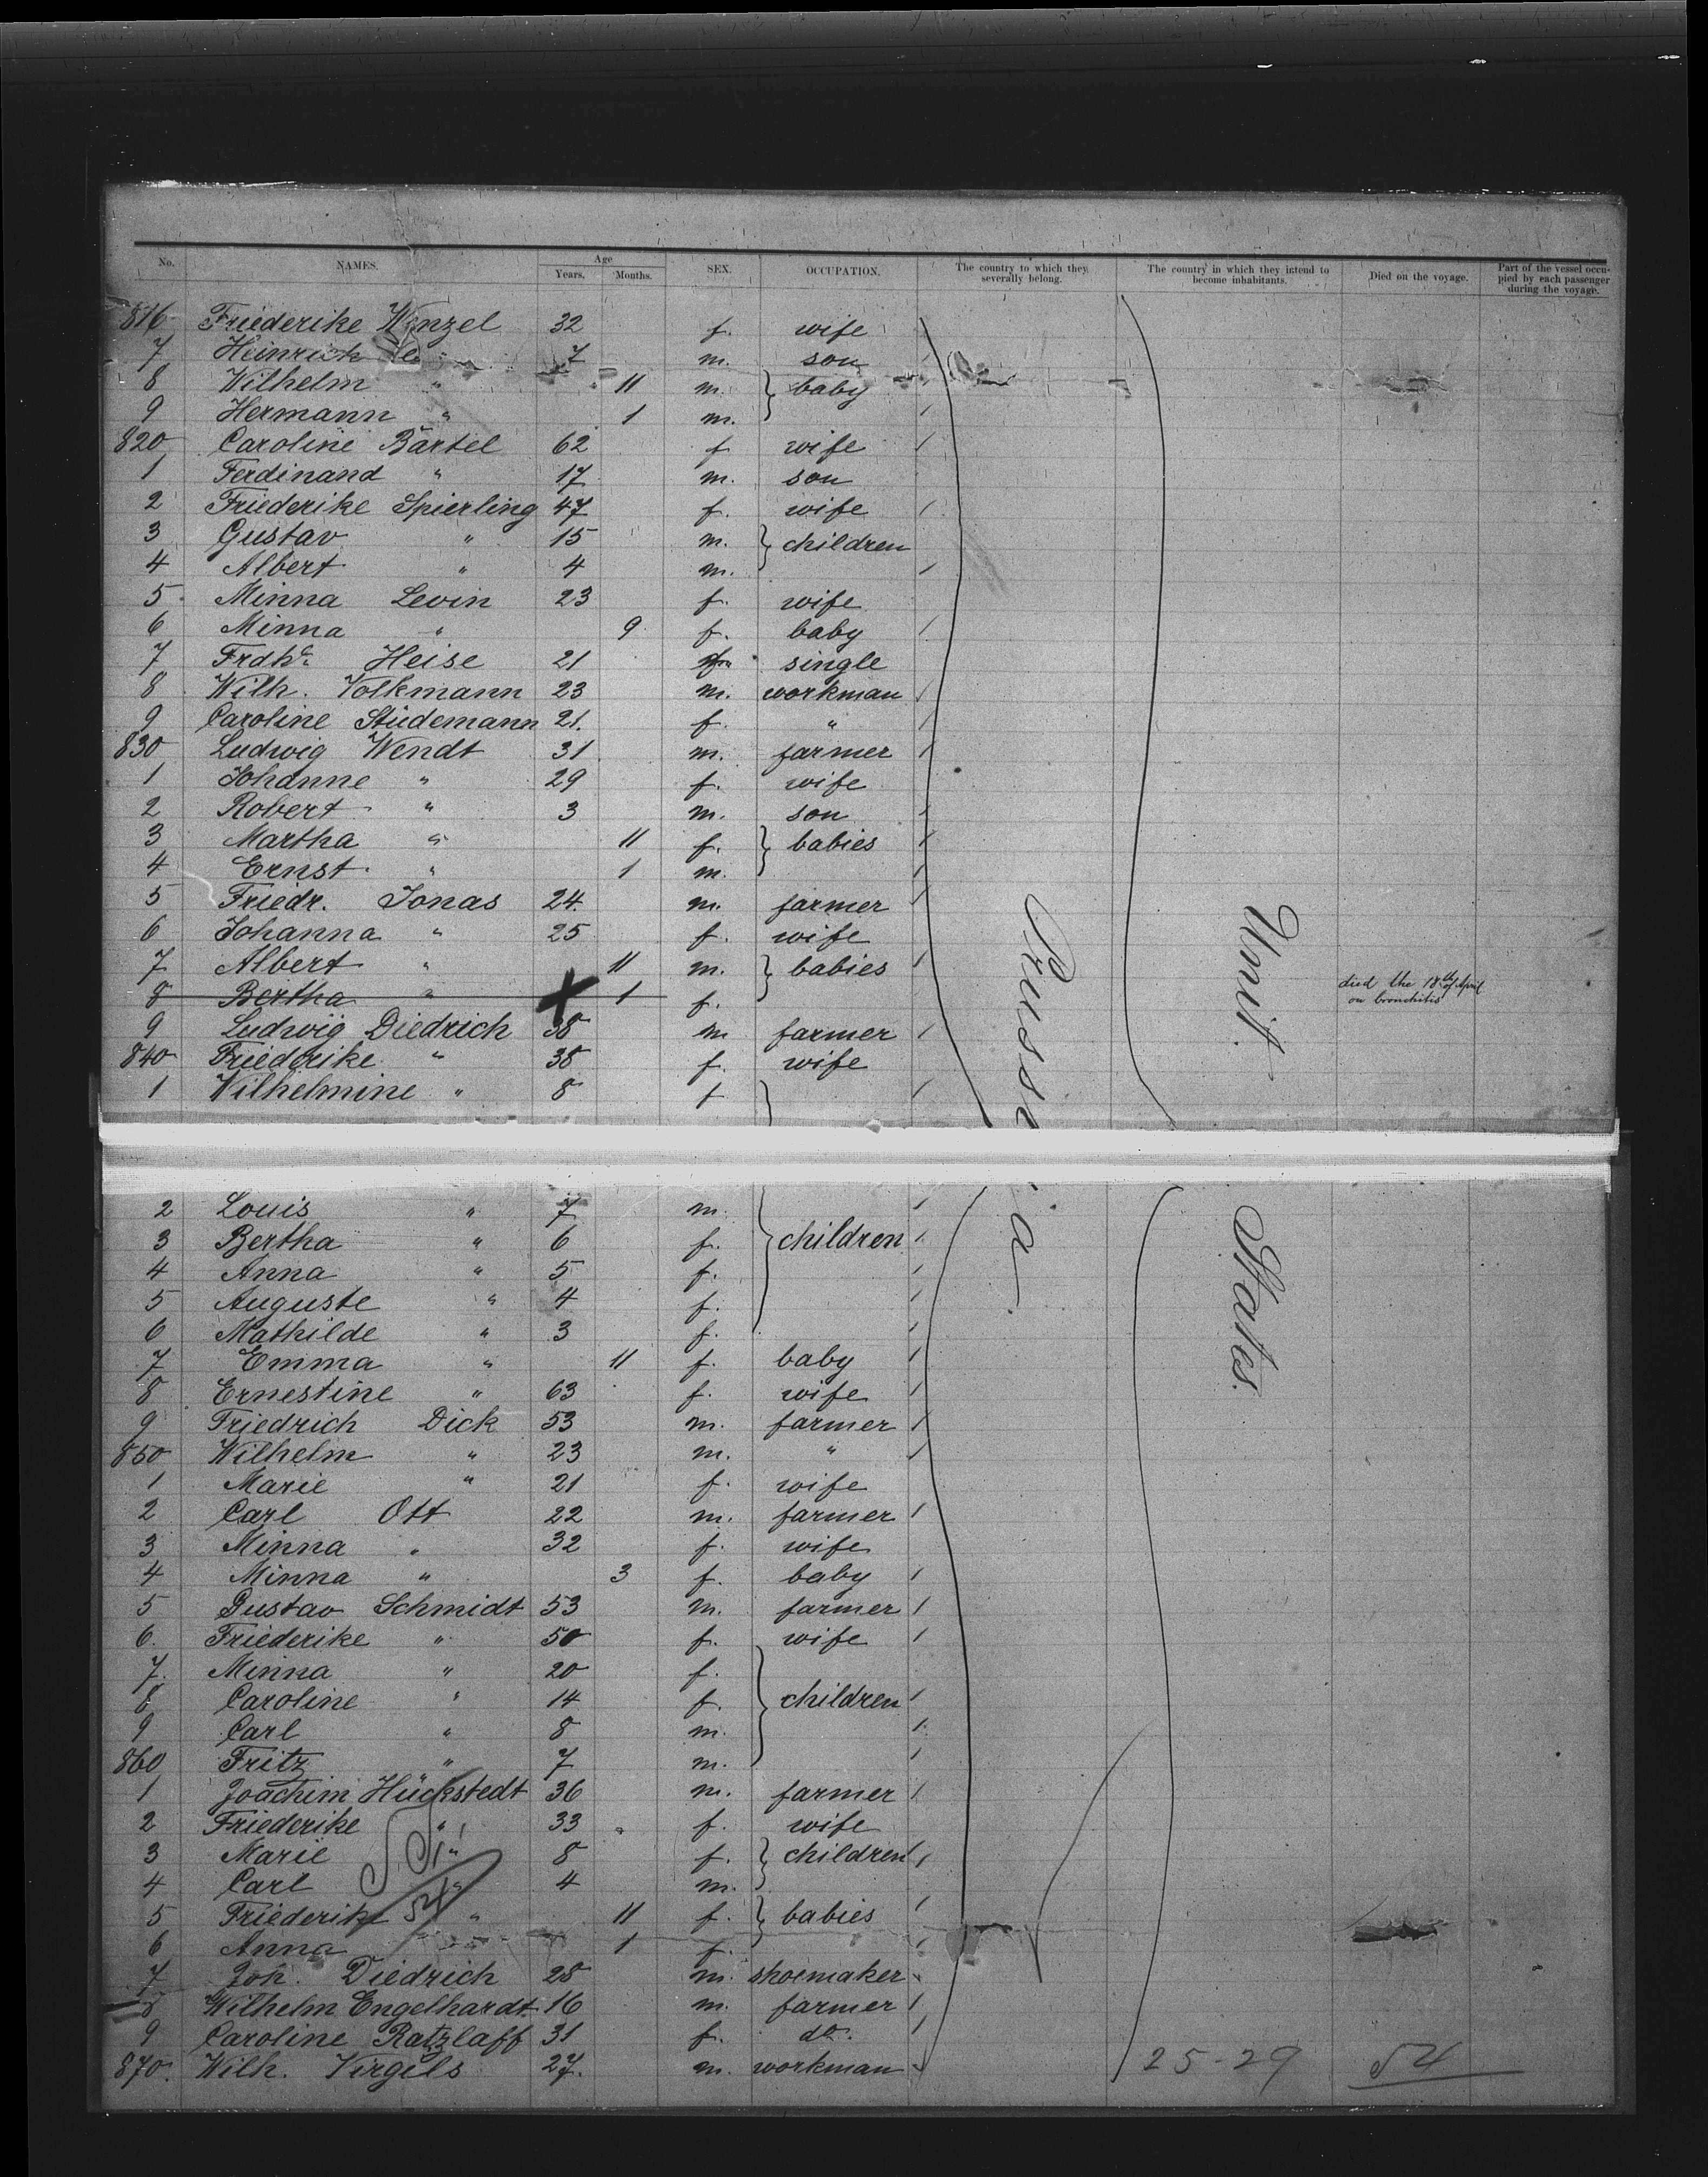 No. NAMES. Age Years. Months. SEX. OCCUPATION. The country to which they severally belong. The country in which they intend to become inhabitants. Died on the voyage. Part of the vessel occupied by each passenger during the voyage.
816 Friederike Wenzel 32 f. wife
7 Heinrich " 7 m. son
8 Wilhelm " 11 m. baby
9 Hermann " 1 m.
820 Caroline Bartel 62 f wife
1 Ferdinand " 17 m. son
2 Friederike Spierling 47 f. wife
3 Gustav " 15 m. children
4 Albert " 4 m.
5 Minna Levin 23 f. wife
6 Minna " 9 f. baby
7 Frdke Heise 21 single
8 Wilh. Volkmann 23 m. workman
9 Caroline Stüdemann 21. f. "
830 Ludwig Wendt 31 m. farmer
1 Johanne " 29 f. wife
2 Robert " 3 m. son
3 Martha " 11 f. babies
4 Ernst " 1 m.
5 Friedr. Jonas 24 m. farmer
6 Johanna " 25 f. wife
7 Albert " 11 m. babies
8 Bertha " 1 f. died the 18th of April on bronchitis
9 Ludwig Diedrich 38 m farmer
840 Friederike " 38 f. wife
1 Wilhelmine " 8 f
Prussia
Unit. States.
2 Louis " 7 m.
3 Bertha " 6 f. children
4 Anna " 5 f.
5 Auguste " 4 f.
6 Mathilde " 3 f.
7 Emma " 11 f. baby
8 Ernestine " 63 f. wife
9 Friedrich Dick 53 m. farmer
850 Wilhelm " 23 m. "
1 Marie " 21 f. wife
2 Carl Ott 22 m. farmer
3 Minna " 32 f. wife
4 Minna " 3 f. baby
5 Gustav Schmidt 53 m. farmer
6. Friederike " 50 f. wife
7. Minna " 20 f.
8 Caroline " 14 f. children
9 Carl " 8 m.
860 Fritz " 7 m.
1 Joachim Hückstedt 36 m. farmer
2 Friederike " 33 f. wife
3 Marie " 8 f. children
4 Carl " 4 m.
5 Friederike " 11 f. babies
54
6 Anna 1 f.
7 Joh. Diedrich 28 m. shoemaker
8 Wilhelm Engelhardt 16 m. farmer
9 Caroline Ratzlaff 31 f. do.
870. Wilh. Virgels 27. m. workman
25-29 54